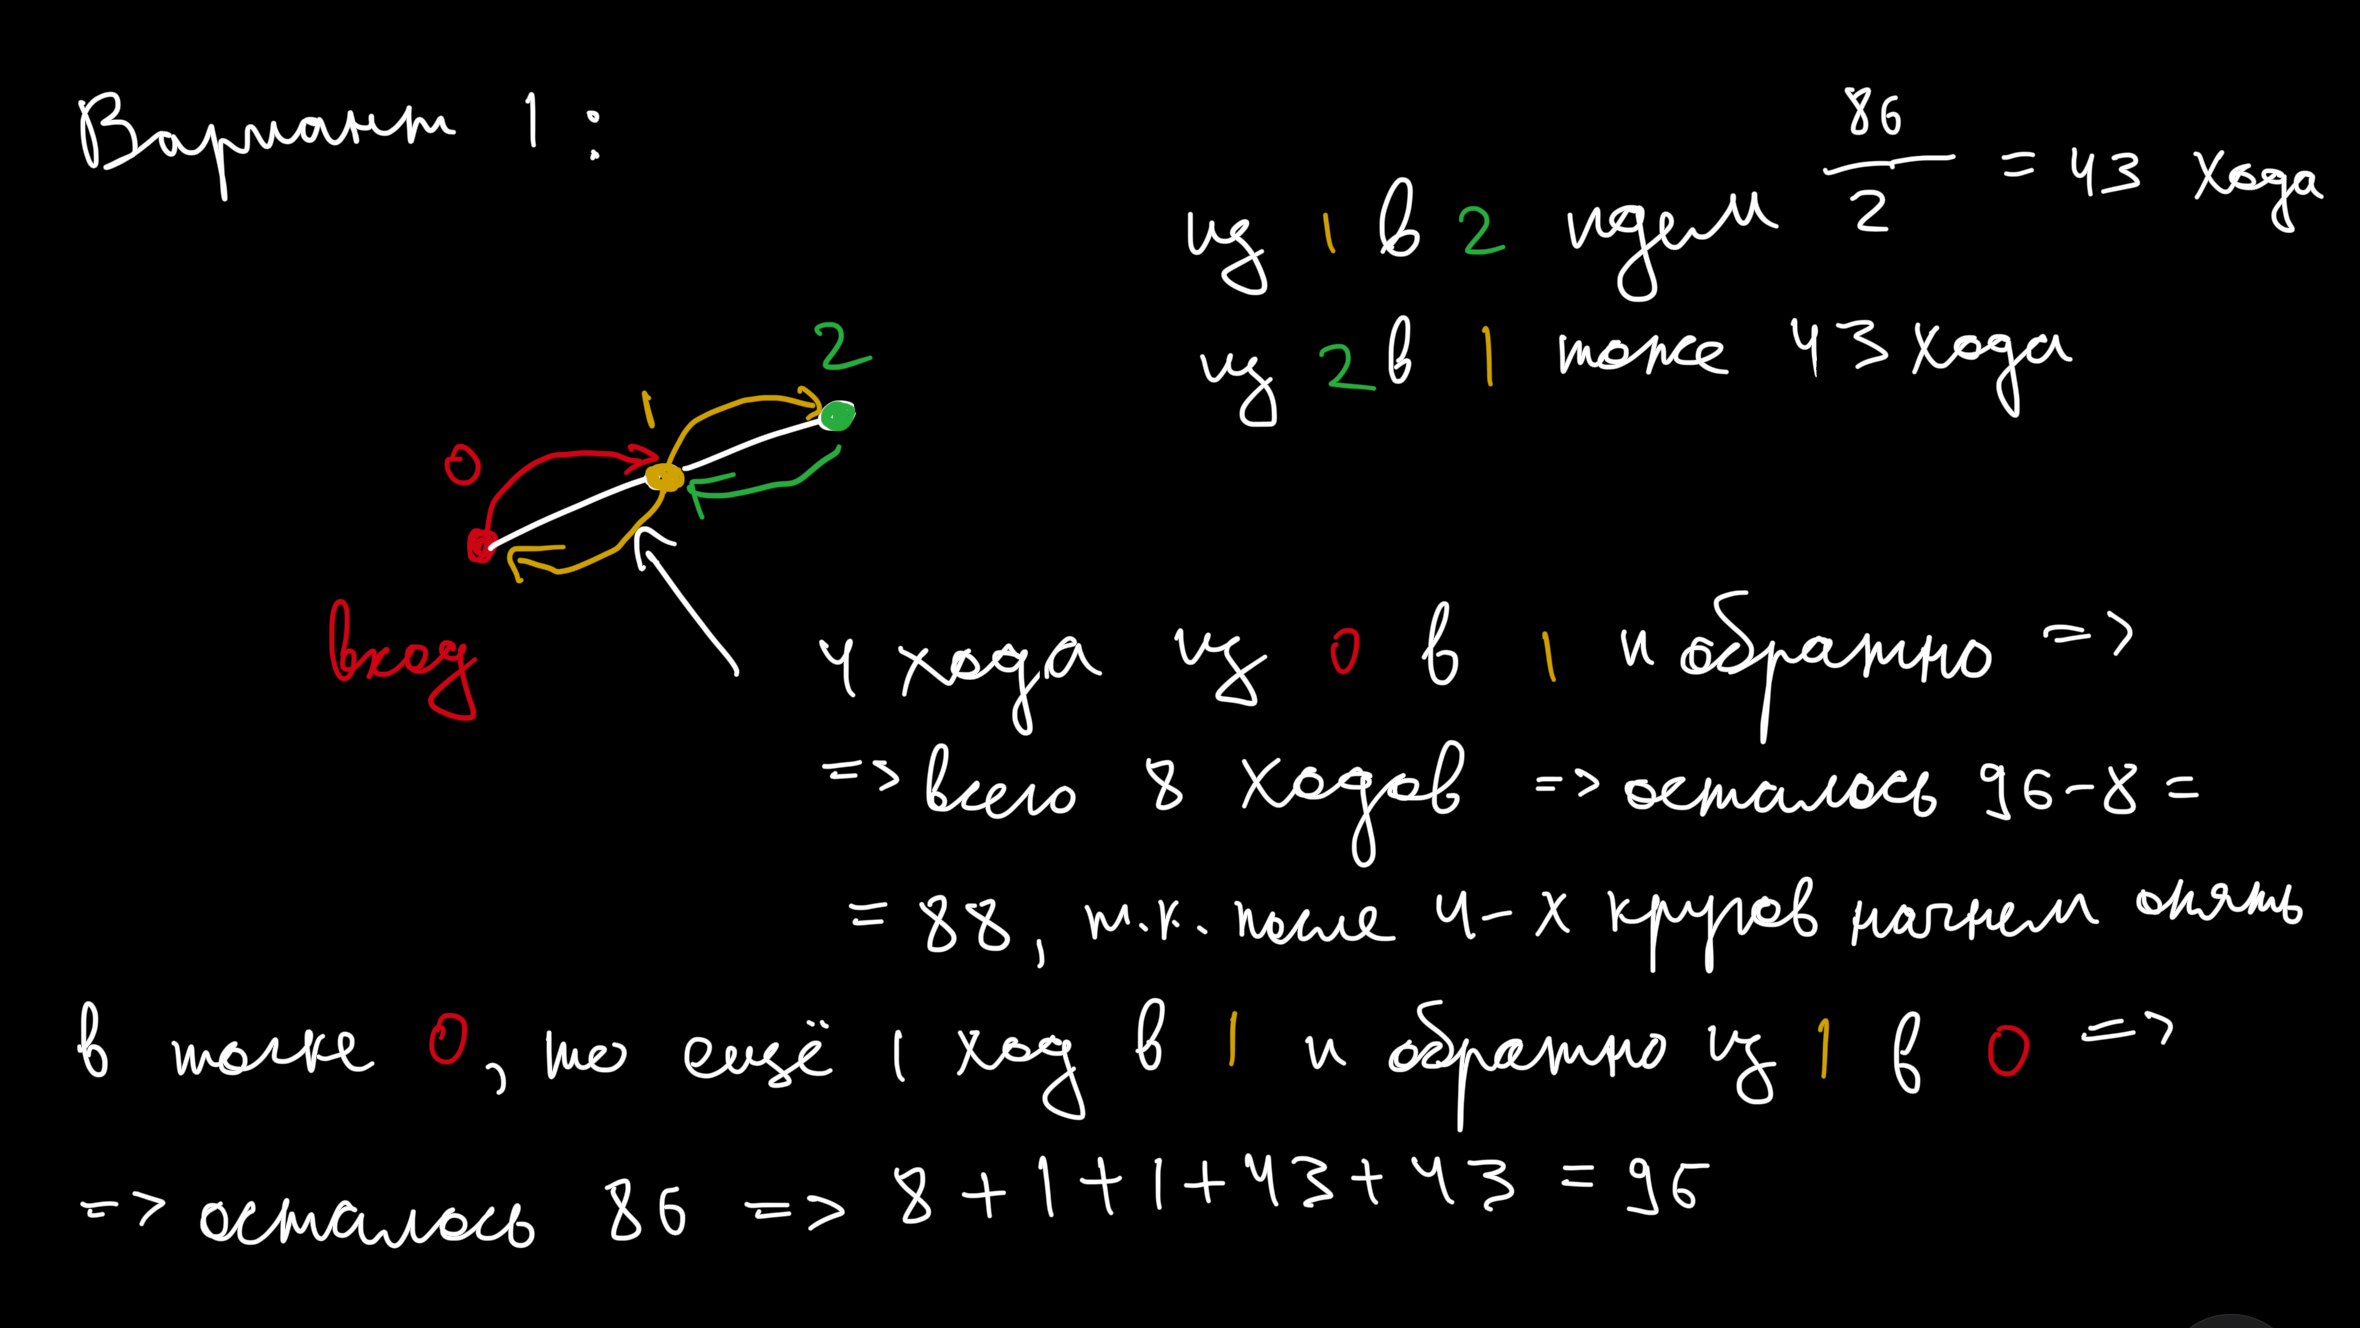 Вариант 1:
из 1 в 2 идем 86/2 = 43 хода
из 2 в 1 тоже 43 хода
2
1
0
вход
4 хода из 0 в 1 и обратно =>
=> всего 8 ходов => осталось 96-8 =
= 88, т.к. после 4-х кругов начнем опять
в точке 0, то ещё 1 ход в 1 и обратно из 1 в 0 =>
=> осталось 86 => 8+1+1+43+43 = 96